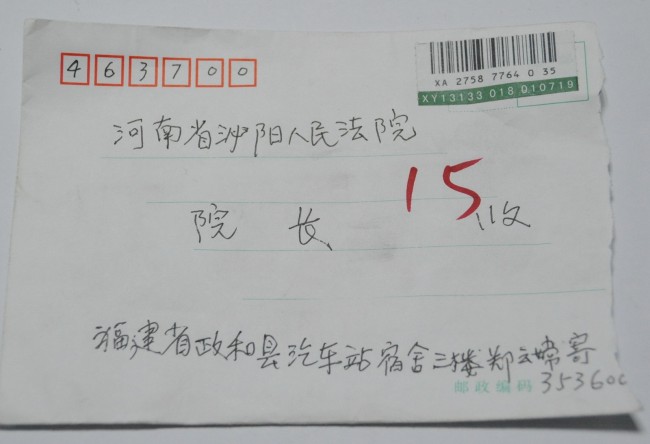 463700
XA 2758 7764 0 35
XY13133 018 010719
河南省泌阳人民法院
15
院长 收
福建省政和县汽车站宿舍三楼郑云嫦寄
邮政编码 353600